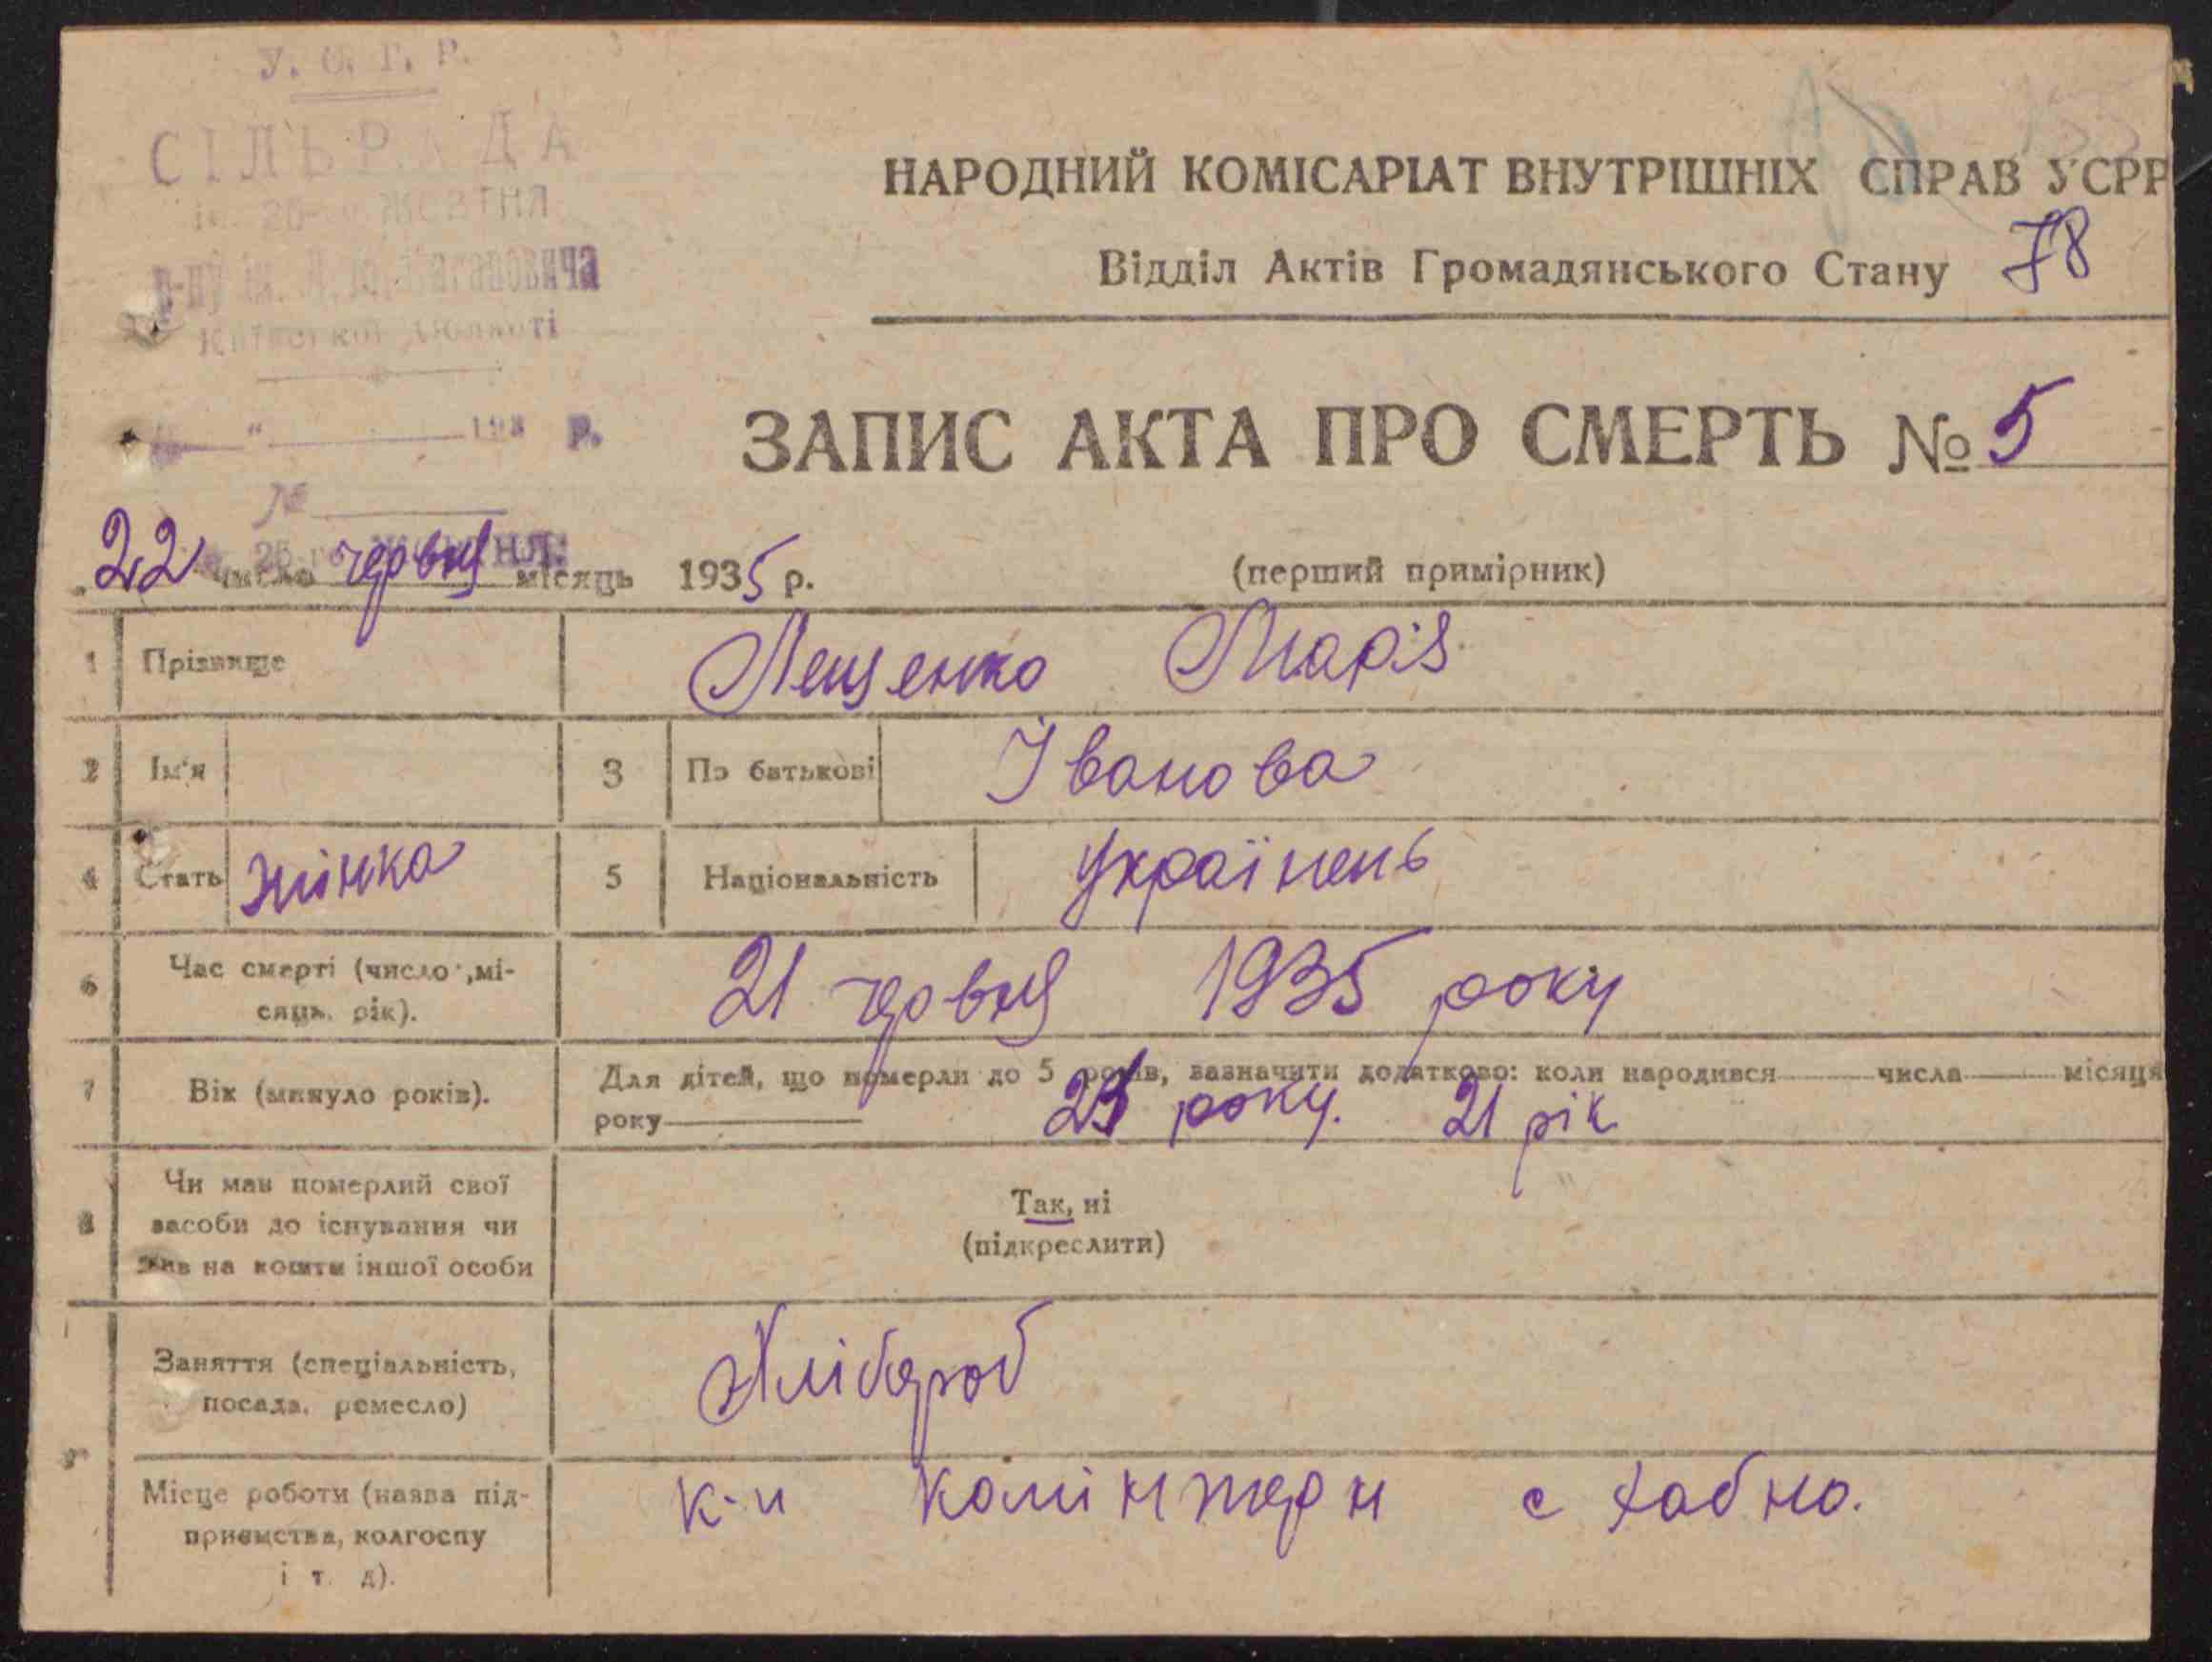 У. С. Р. Р.
СІЛЬРАДА
ЖОВТНЯ
р-ну ім. Л. М. Кагановича
Київської области
НАРОДНИЙ КОМІСАРІАТ ВНУТРІШНІХ СПРАВ УСРР
Відділ Актів Громадянського Стану 78
„ “ 193 р.
ЗАПИС АКТА ПРО СМЕРТЬ № 5
№
22 число червня місяць 1935 р.
(перший примірник)
1 Прізвище Лещенко Марія
2 Ім'я 3 По батькові Іванова
4 Стать жінка 5 Національність Українець
6 Час смерті (число, мі-
сяць, рік). 21 червня 1935 року
7 Вік (минуло років). Для дітей, що померли до 5 років, зазначити додатково: коли народився числа місяця
року року. 21 рік
8 Чи мав померлий свої
засоби до існування чи
жив на кошти іншої особи
Так, ні
(підкреслити)
9 Заняття (спеціальність,
посада, ремесло) Хлібороб
Місце роботи (назва під-
приємства, колгоспу
і т. д). к-п Комінтерн с Хабно.